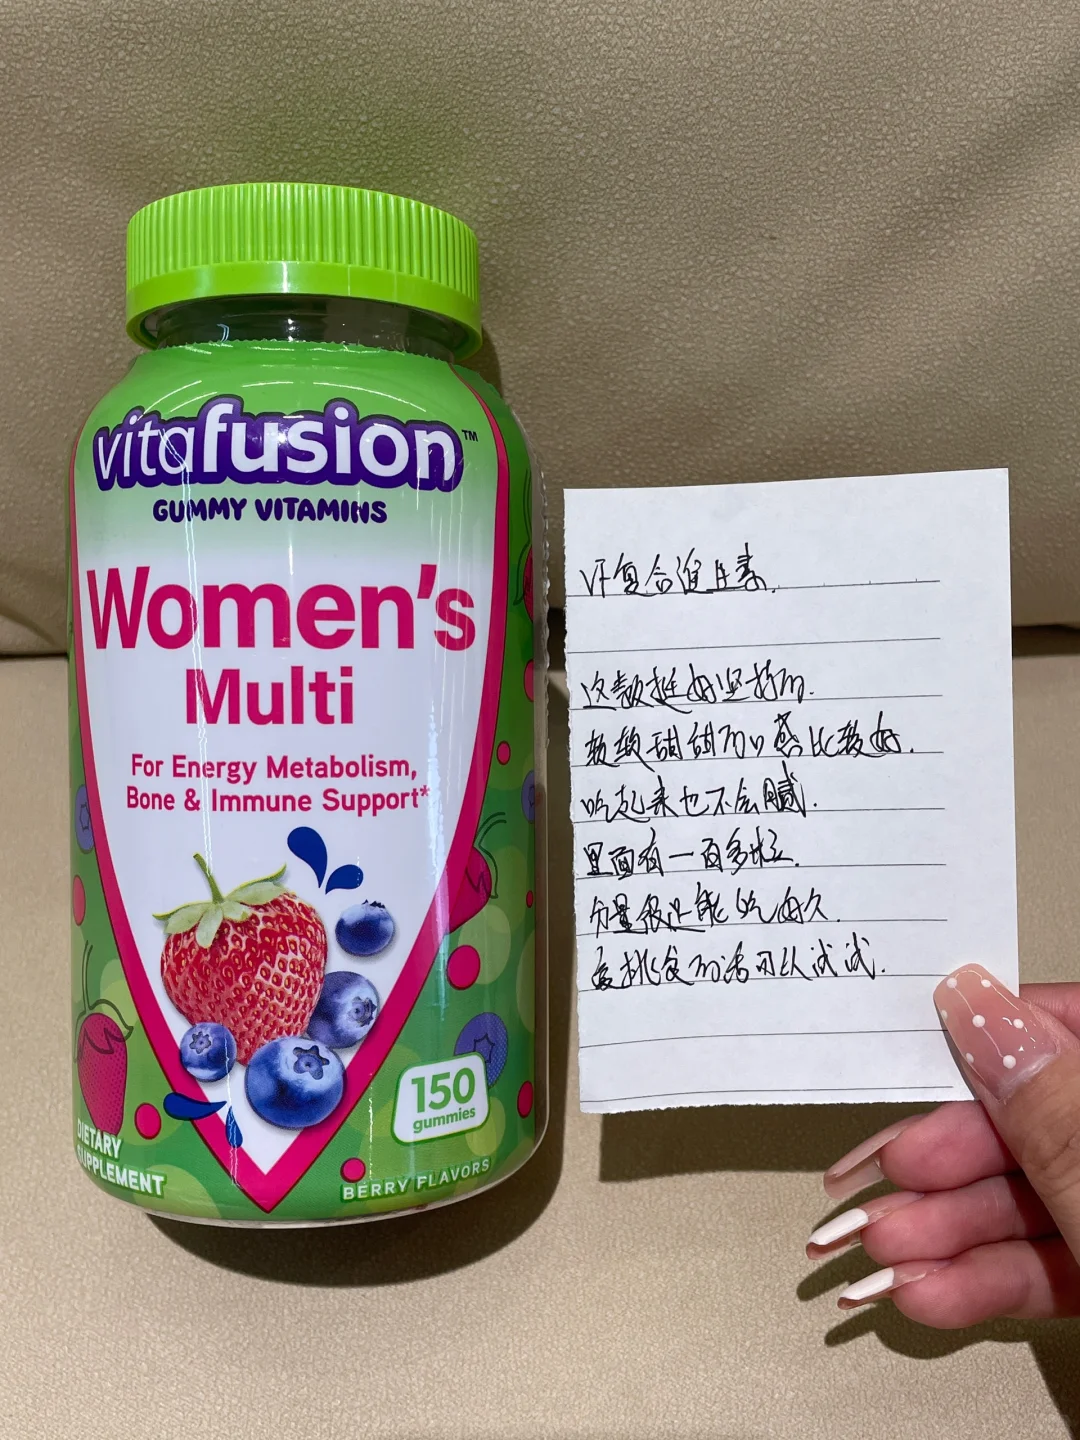 vitafusion™
GUMMY VITAMINS
Women's
Multi
For Energy Metabolism,
Bone & Immune Support*
150
gummies
DIETARY
SUPPLEMENT
BERRY FLAVORS
VF复合维生素.
这款挺好坚持的.
软软甜甜的口感比较好.
吃起来也不会腻.
里面有一百多粒.
分量很足能吃好久.
爱挑食的话可以试试.